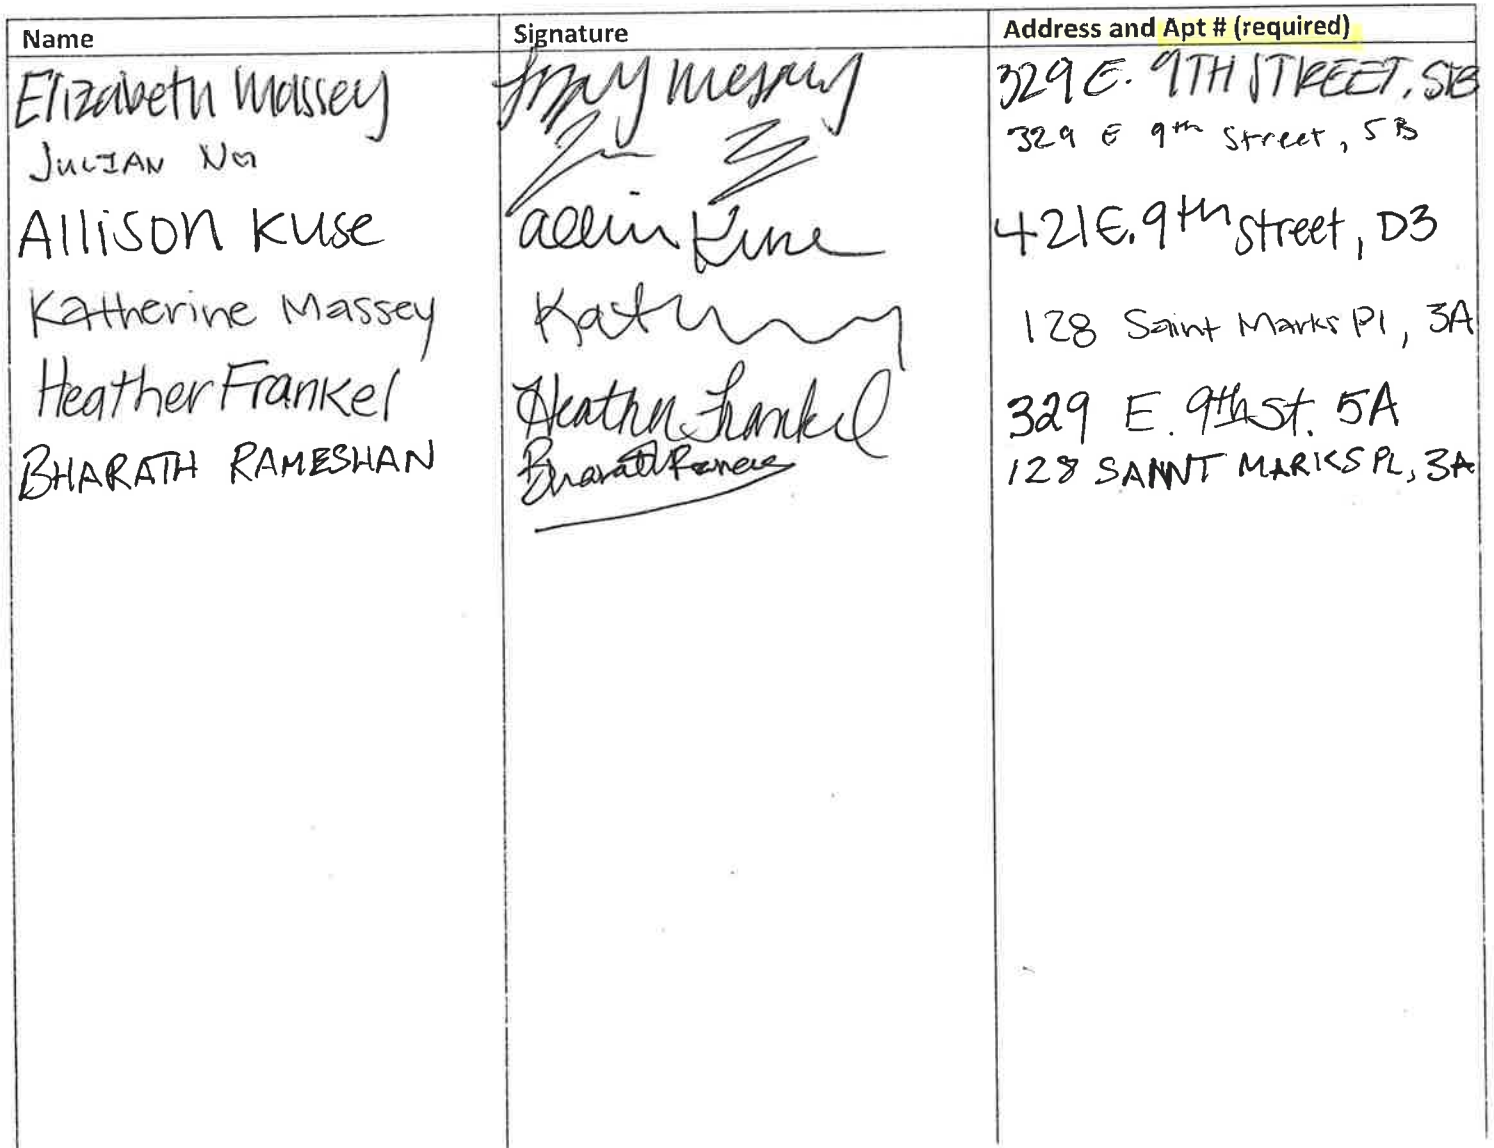 Name Signature Address and Apt # (required)
Elizabeth Massey Massey 329 E. 9TH STREET, 5B
JULIAN 329 E 9th Street, 5B
Allison Kuse Kuse 421 E. 9th Street, D3
Katherine Massey 128 Saint Marks Pl, 3A
Heather Frankel Heather Frankel 329 E. 9th St. 5A
BHARATH RAMESHAN Bharath 128 SAINNT MARKS PL, 3A